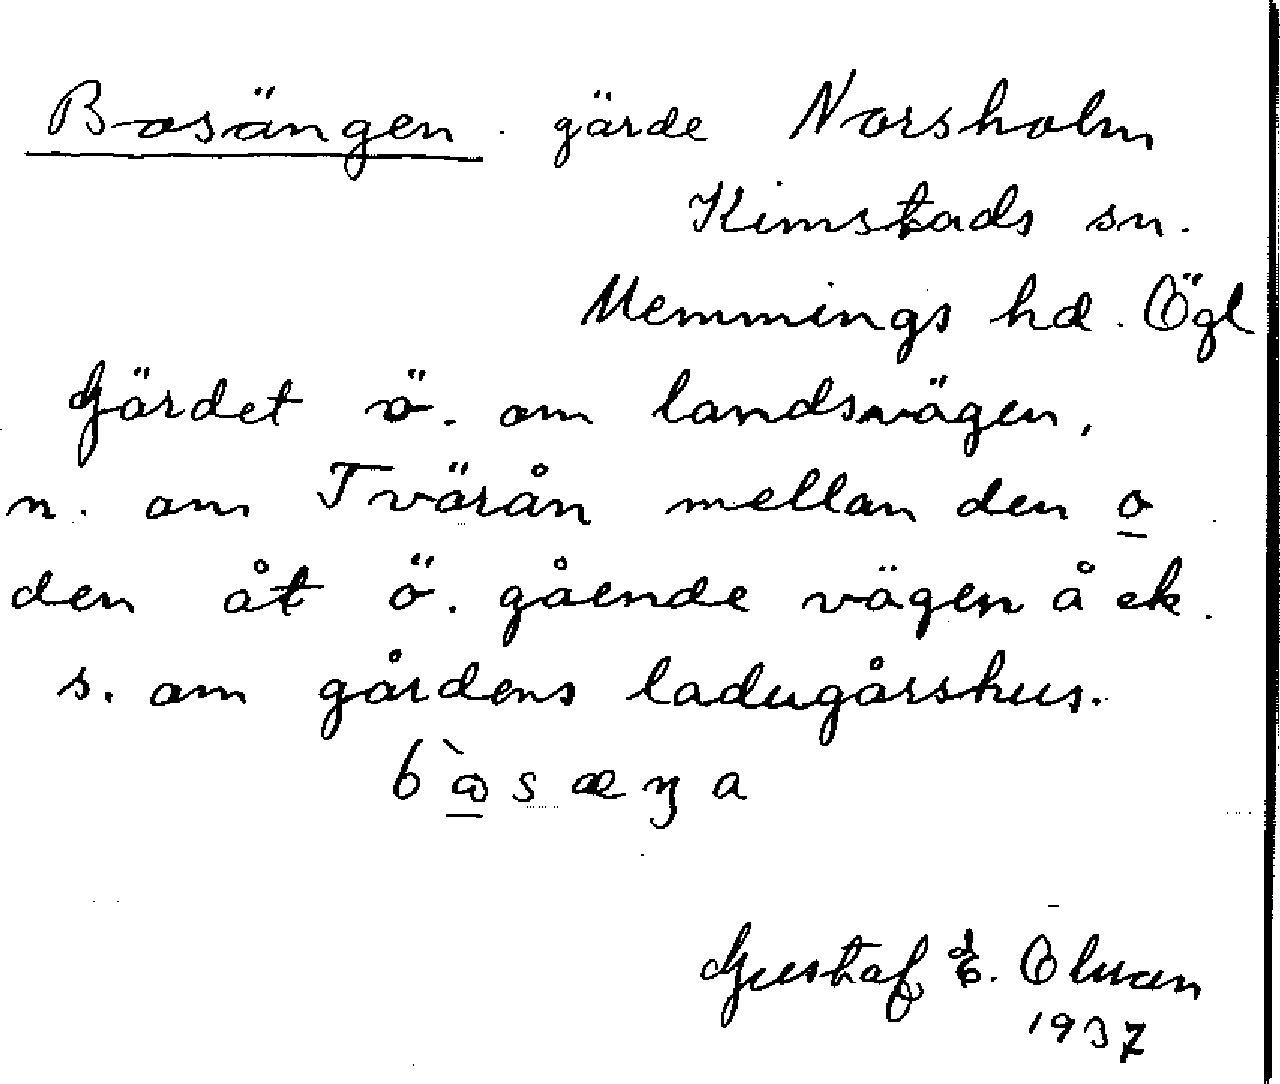 Bosängen gärde Norsholm
Kimstads sn.
Memmings hd. Ögl
Gärdet ö. om landsvägen,
n. om Tvärån mellan den o
den åt ö. gående vägen å ek.
s. om gårdens ladugårshus.
Gustaf E.
1937